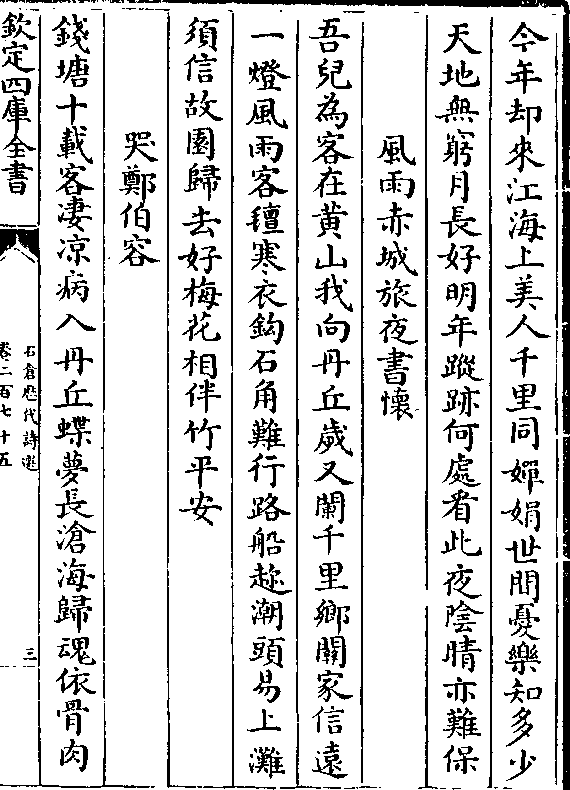 今年却來江海上美人千里同嬋娟世間憂樂知多少
天地無窮月長好明年蹤跡何處看此夜陰晴亦難保
風雨赤城旅夜書懷
吾兒為客在黄山我向丹丘歲又闌千里鄉關家信遠
一燈風雨客氊寒衣鈎石角難行路船趂潮頭易上灘
須信故園歸去好梅花相伴竹平安
哭鄭伯容
錢塘十載客凄凉病入丹丘蝶夢長滄海歸魂依骨肉
欽定四庫全書
石倉歷代詩選
卷二百七十五
三